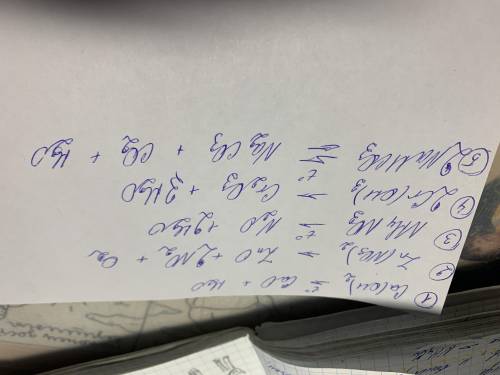 ① Ca(OH)₂ =t° CaO + H₂O
② Zn(NO₃)₂ → ZnO + 2NO₂ + O₂
③ NH₄NO₃ =t° N₂O + 2H₂O
④ 2Cr(OH)₃ →t° Cr₂O₃ + 3H₂O
⑤ 2NaHCO₃ =t° Na₂CO₃ + CO₂ + H₂O